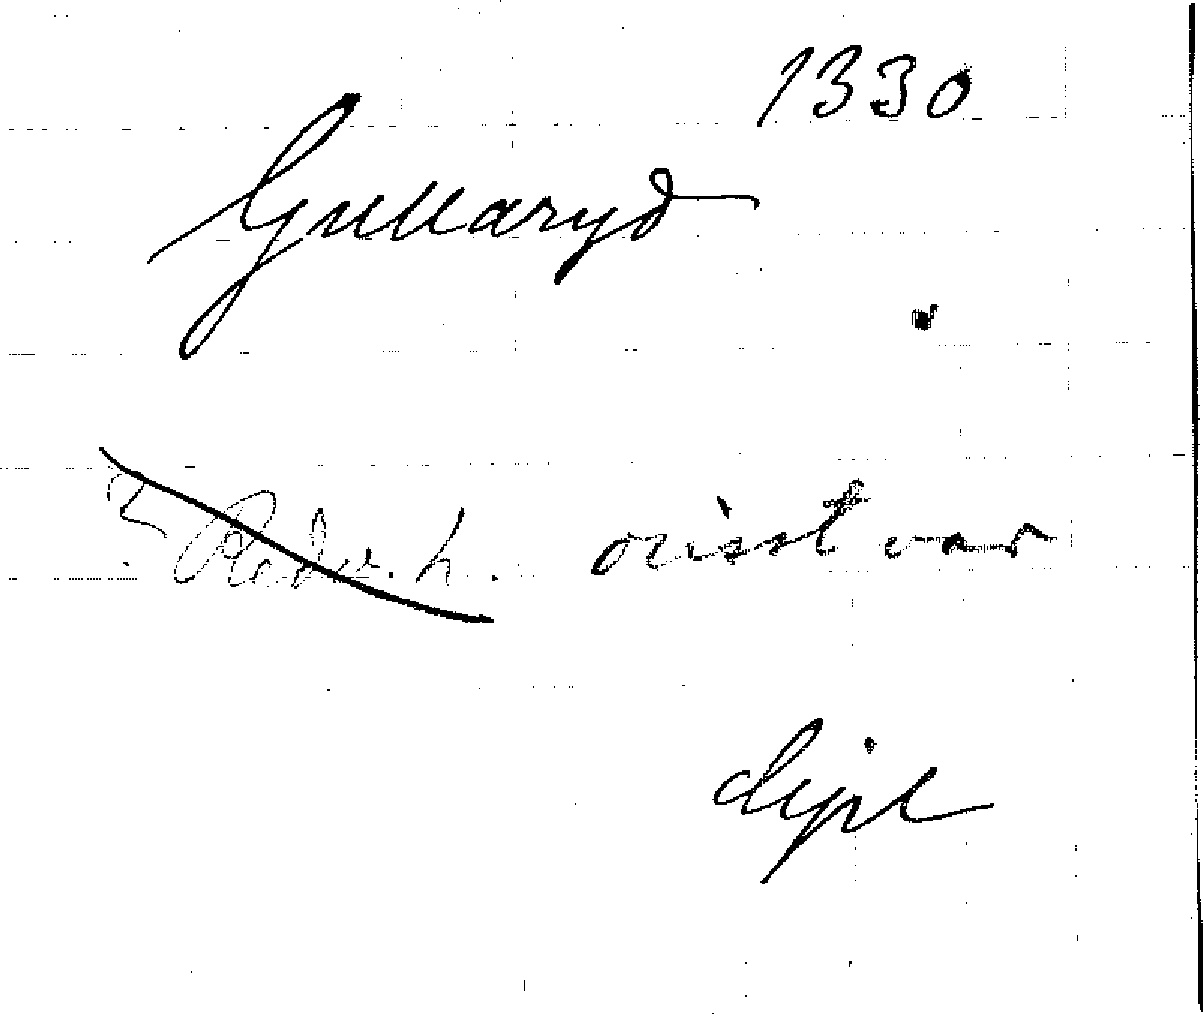 1330
Gullaryd
? Redv. h. ovisst var
dipl